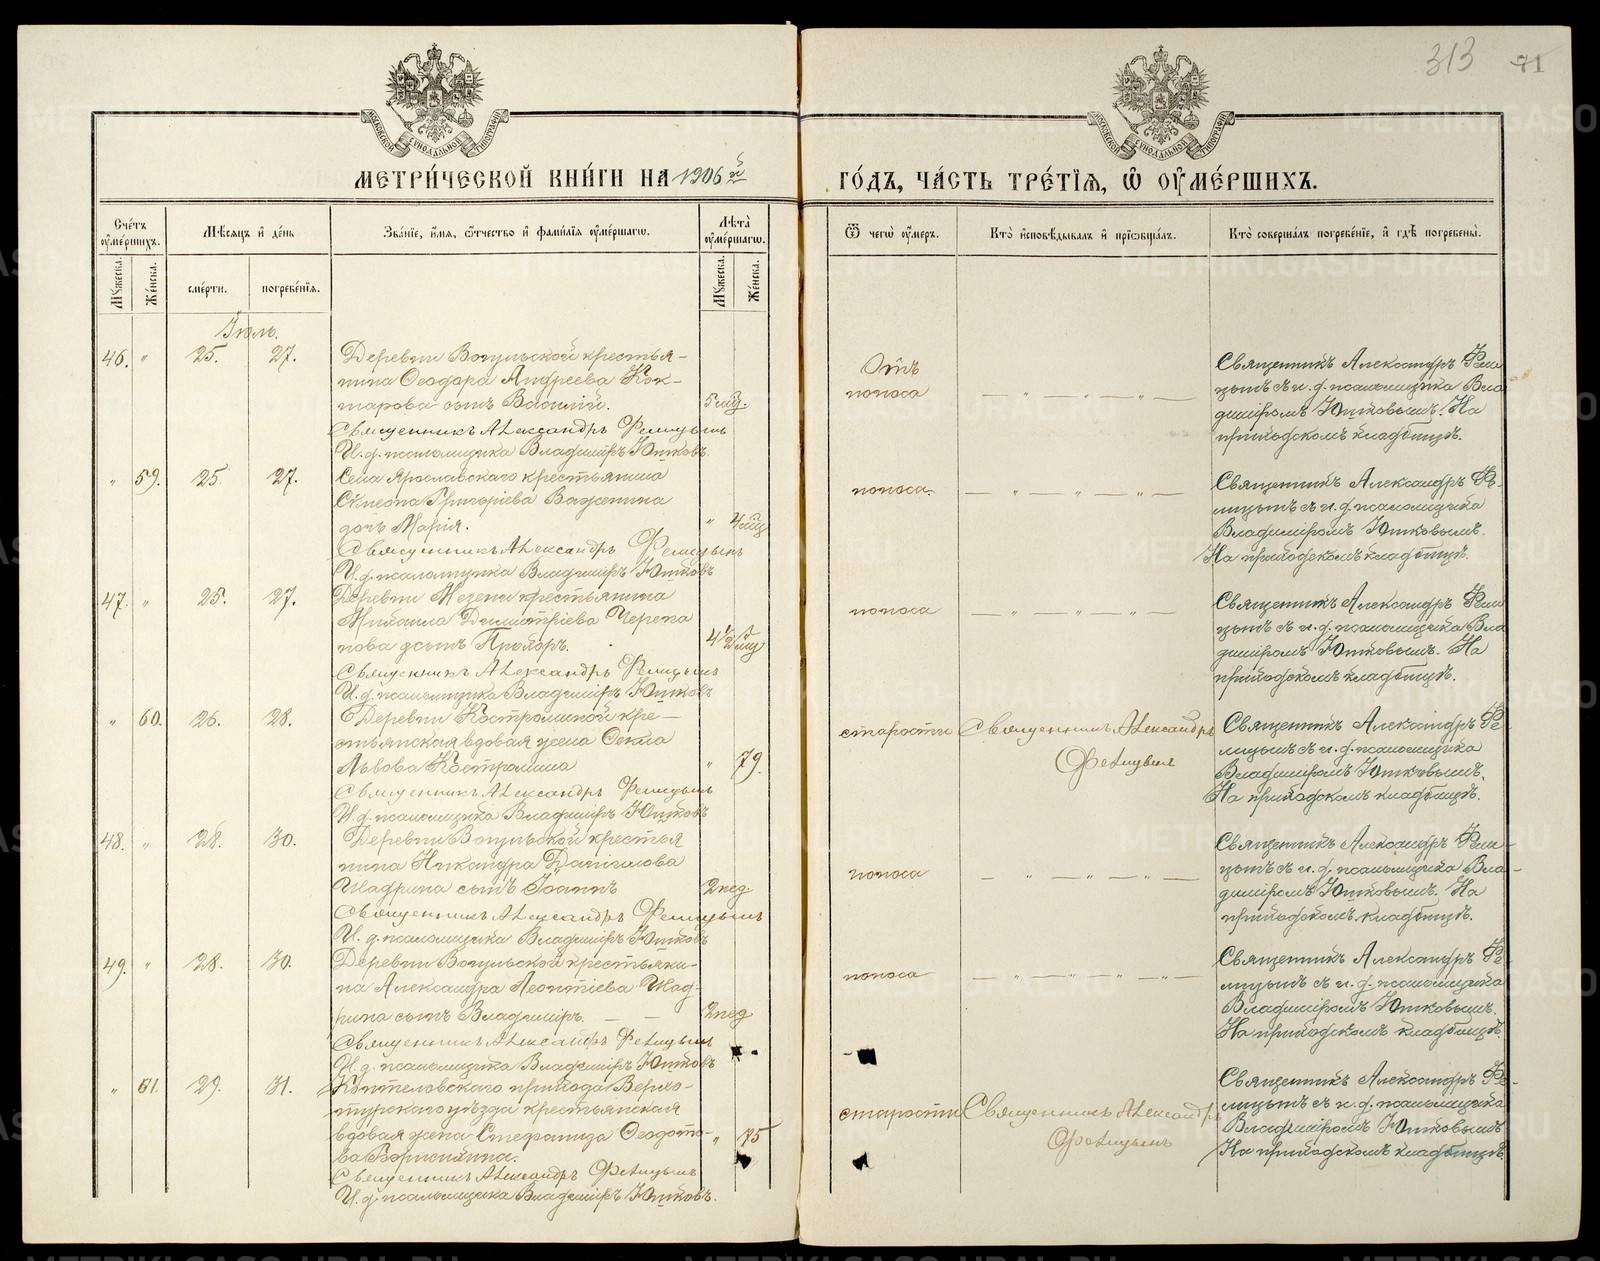 313 71
МОСКОВСКОЙ СУНОДАЛЬНОЙ ТИПОГРАФІИ
МОСКОВСКОЙ СУНОДАЛЬНОЙ ТИПОГРАФІИ
МЕТРИ́ЧЕСКОЙ КНИ́ГИ НА 1906й
ГО́ДЪ, ЧА́СТЬ ТРЕ́ТІѦ, Ѡ ОУ҆МЕ́РШИХЪ.
Сче́тъ оу҆ме́ршихъ.
Мѣ́сяцъ и҆ де́нь
Зва́нїе, и҆́мя, ѻ҆́тчество и҆ фами́лїя оу҆ме́ршагѡ.
Лѣта̀ оу҆ме́ршагѡ.
Ѿ чегѡ̀ оу҆́меръ.
Кто̀ и҆сповѣ́дывалъ и҆ прїѡбща́лъ.
Кто̀ соверша́лъ погребе́нїе, и҆ гдѣ̀ погребены̀.
Му́жеска.
Же́нска.
сме́рти.
погребе́нїя.
Му́жеска.
Же́нска.
Іюль.
46. " 25. 27. Деревни Вогульской крестья-
нина Ѳеодора Андреева Кок-
шарова сынъ Василій. 5 мц.
Священникъ Александръ Фелицынъ
И. д. псаломщика Владиміръ Юшковъ.
Отъ
поноса — " — " — " —
Священникъ Александръ Фели
цынъ съ и. д. псаломщика Вла
диміромъ Юшковымъ. На
приходскомъ кладбищѣ.
" 59. 25. 27. Села Ярославскаго крестьянина
Сѵмеона Григоріева Важенина
дочь Марія. " 4 мц
Священникъ Александръ Фелицынъ
И. д. псаломщика Владиміръ Юшковъ
поноса. — " — " — " —
Священникъ Александръ Фе-
лицынъ съ и. д. псаломщика
Владиміромъ Юшковымъ.
На приходскомъ кладбищѣ.
47. " 25. 27. Деревни Мезени крестьянина
Михаила Димитріева Черепа
нова сынъ Прохоръ.
Священникъ Александръ Фелицынъ
И. д. псаломщика Владиміръ Юшковъ
поноса — " — " — " —
Священникъ Александръ Фели
цынъ съ и. д. псаломщика Вла
диміромъ Юшковымъ. На
приходскомъ кладбищѣ.
" 60. 26. 28. Деревни Костроминой кре-
стьянская вдовая жена Ѳекла
Львова Костромина " 79.
Священникъ Александръ Фелицынъ
И. д. псаломщика Владиміръ Юшковъ
старости Священникъ Александръ
Фелицынъ
Священникъ Александръ Фе
лицынъ съ и. д. псаломщика
Владиміромъ Юшковымъ.
На приходскомъ кладбищѣ.
48. " 28. 30. Деревни Вогульской крестья
нина Никандра Даніилова
Шадрина сынъ Іоаннъ 2 нед
Священникъ Александръ Фелицынъ
И. д. псаломщика Владиміръ Юшковъ
поноса — " — " — " —
Священникъ Александръ Фели-
цынъ съ и. д. псаломщика Вла-
диміромъ Юшковымъ. На
приходскомъ кладбищѣ.
49. " 28. 30. Деревни Вогульской крестьяни-
на Александра Леонтіева Шад-
рина сынъ Владиміръ. — — 2 нед
Священникъ Александръ Фелицынъ
И. д. псаломщика Владиміръ Юшковъ
поноса — " — " — " —
Священникъ Александръ Фе-
лицынъ съ и. д. псаломщика
Владиміромъ Юшковымъ.
На приходскомъ кладбищѣ.
" 61. 29. 31. Коптеловскаго прихода Верхо-
турскаго уѣзда крестьянская
вдовая жена Стефанида Ѳеодото-
ва " 75
Священникъ Александръ Фелицынъ
И. д. псаломщика Владиміръ Юшковъ.
старости Священникъ Александръ
Фелицынъ
Священникъ Александръ Фе-
лицынъ съ и. д. псаломщика
Владиміромъ Юшковымъ
На приходскомъ кладбищѣ.
METRIKI.GASO-URAL.RU